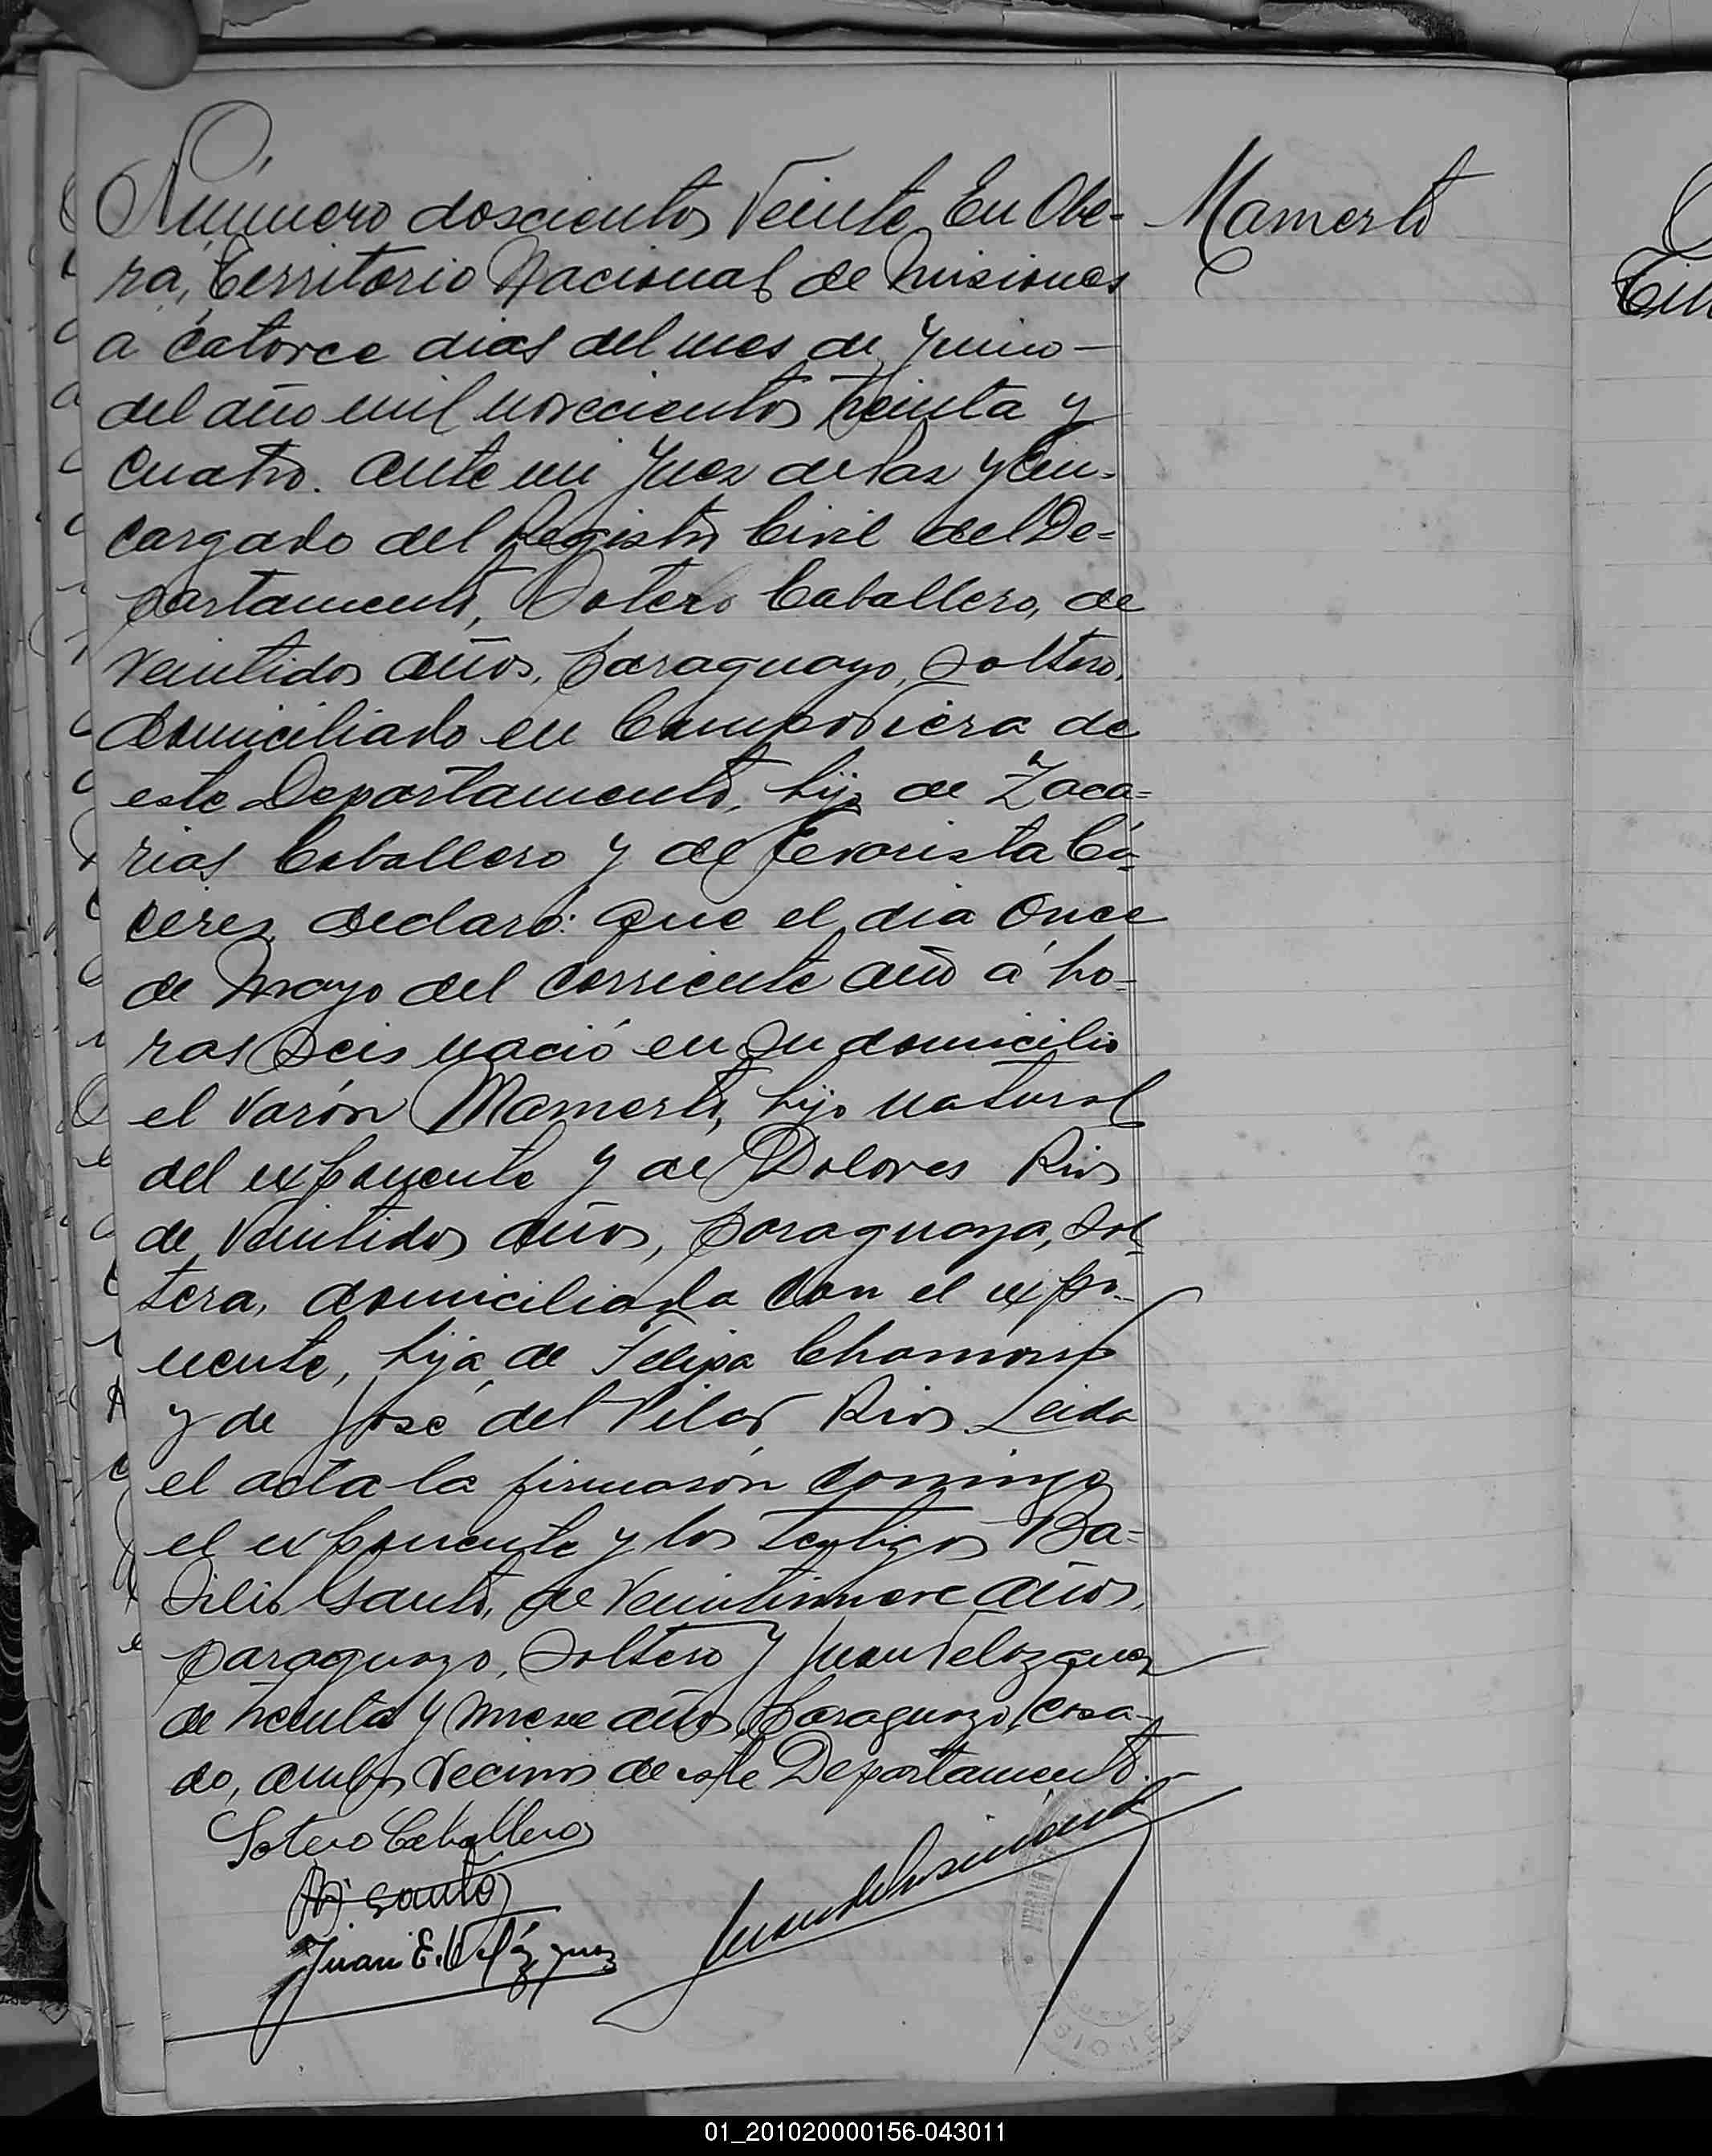 Número doscientos Veinte En Obe-
rá, Territorio Nacional de Misiones
a catorce dias del mes de Junio -
del año mil novecientos treinta y
cuatro. ante mi Juez de Paz y En-
cargado del Registro Civil del De-
partamento, Sotero Caballero, de
veintidos años, paraguayo, soltero,
domiciliado en Campo Viera de
este Departamento, hijo de Zaca-
rias Caballero y de Evarista Cá-
ceres, declaró: Que el dia Once
de Mayo del corriente año á ho-
ras Seis nació en su domicilio
el varón Mamerto, hijo natural
del exponente y de Dolores Rios
de veintidos años, paraguaya, sol-
tera, domiciliada con el expo-
nente, hija de Felipa Chamorro
y de José del Pilar Rios Leida
el acta la firmaron conmigo
el exponente y los testigos Ba-
silio Santo, de veintinueve años,
paraguayo, soltero y Juan Velozquez
de treinta y nueve años, paraguayo, casa-
do, ambos vecinos de este Departamento.
Sotero Caballero
Santo
Juan E. Velázquez
Mamerto
01_201020000156-043011